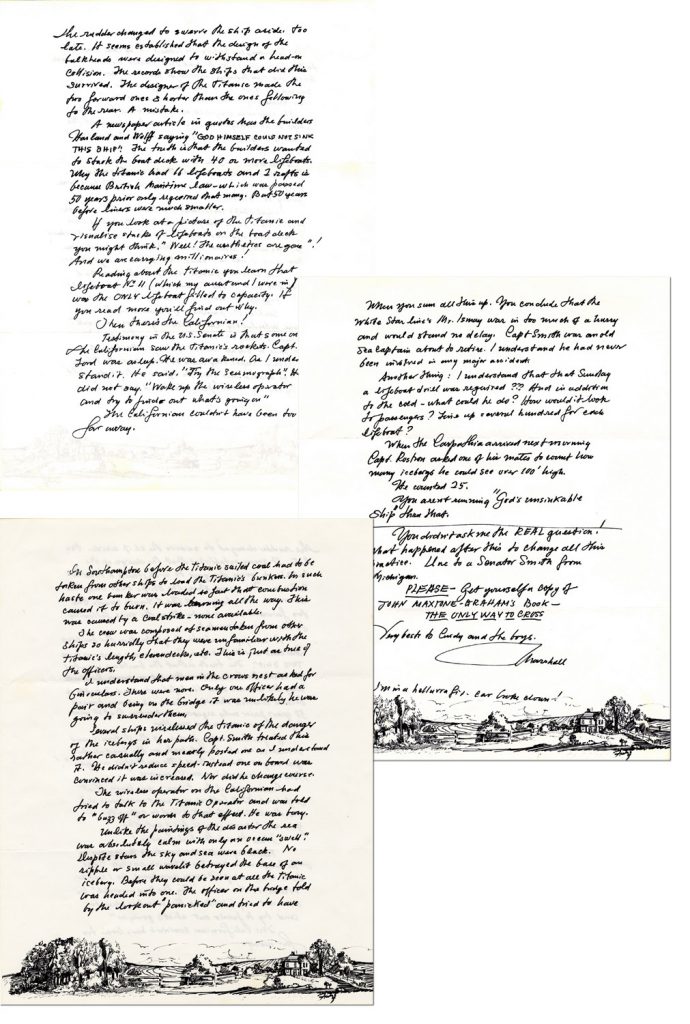 the rudder changed to swerve the ship aside. Too
late. It seems established that the design of the
bulkheads were designed to withstand a head-on
collision. The records show the ships that did this
survived. The designer of the Titanic made the
two forward ones shorter than the ones following
to the rear. A mistake.
A newspaper article in quotes has the builders
Harland and Wolff saying "GOD HIMSELF COULD NOT SINK
THIS SHIP". The truth is that the builders wanted
to stack the boat deck with 40 or more lifeboats.
Why the Titanic had 16 lifeboats and 2 rafts is
because British Maritime law - which was passed
50 years prior only required that many. But 50 years
before liners were much smaller.
If you look at a picture of the Titanic and
visualise stacks of lifeboats on the boat deck
you might think. "Well! The aesthetics are gone"!
And we are carrying millionaires!
Reading about the Titanic you learn that
lifeboat No 11 (which my aunt and I were in)
was the ONLY lifeboat filled to capacity. If
you read more you'll find out why.
Then there's the Californian!
Testimony in the U.S. Senate is that some on
the Californian saw the Titanic's rockets. Capt.
Lord was asleep. He was awakened. As I under
stand it. He said. "Try the semograph". He
did not say. "Wake up the wireless operator
and try to find out what's going on"
The Californian couldn't have been too
far away.
When you sum all this up. You conclude that the
White Star line's Mr. Ismay was in too much of a hurry
and would stand no delay. Capt Smith was an old
sea captain about to retire. I understand he had never
been involved in any major accident.
Another thing: I understand that that Sunday
a lifeboat drill was required?? And in addition
to the cold - what could he do? How would it look
to passengers? Line up several hundred for each
lifeboat?
When the Carpathia arrived next morning
Capt. Rostron asked one of his mates to count how
many icebergs he could see over 100' high.
He counted 25.
You aren't running "God's unsinkable
Ship" thru that.
You didn't ask me the REAL question!
what happened after this to change all this
Due to a Senator Smith from
Michigan.
PLEASE - Get yourself a copy of
JOHN MAXTONE-GRAHAM'S BOOK -
THE ONLY WAY TO CROSS
Very best to Cindy and the boys.
Marshall
I'm in a helluva fix. Ear broke down!
In Southampton before the Titanic sailed coal had to be
taken from other ships to load the Titanic's bunkers. In such
haste one bunker was loaded so fast that combustion
caused it to burn. It was burning all the way. This
was caused by a coal strike - none available.
The crew was composed of seamen taken from other
ships so hurriedly that they were unfamiliar with the
Titanic's length, eleven decks, etc. This is just as true of
the officers.
I understand that men in the crows nest asked for
binoculars. There were none. Only one officer had a
pair and being on the bridge it was unlikely he was
going to surrender them.
Several ships wirelessed the Titanic of the danger
of the icebergs in her path. Capt. Smith treated this
rather casually and merely posted one as I understand
it. He didn't reduce speed. instead one on board was
convinced it was increased. Nor did he change course.
The wireless operator on the Californian had
tried to talk to the Titanic Operator and was told
to "buzz off" or words to that effect. He was busy.
Unlike the paintings of the disaster the sea
was absolutely calm with only an ocean "swell".
Despite stars the sky and sea were black. No
ripple or small wavelet betrayed the base of an
iceberg. Before they could be seen at all the Titanic
was headed into one. The officer on the bridge told
by the lookout "panicked" and tried to have